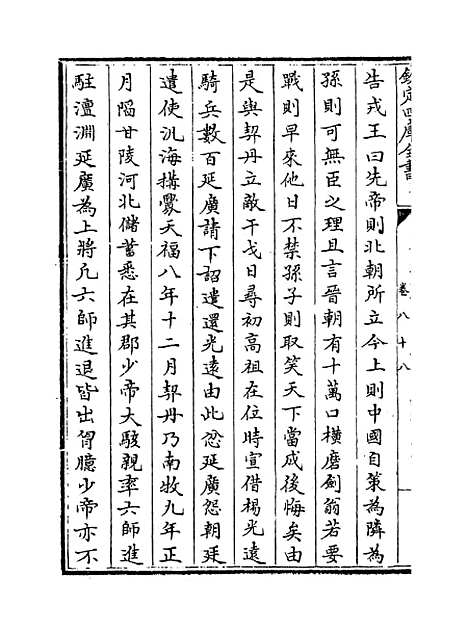 欽定四庫全書
卷八十八
告戎王曰先帝則北朝所立今上則中國自策為隣為
孫則可無臣之理且言晉朝有十萬口橫磨劍翁若要
戰則早來他日不禁孫子則取笑天下當成後悔矣由
是與契丹立敵干戈日尋初高祖在位時宣借楊光遠
騎兵數百延廣請下詔遣還光遠由此忿延廣怨朝廷
遣使汎海搆釁天福八年十二月契丹乃南牧九年正
月陷甘陵河北儲蓄悉在其郡少帝大駭親率六師進
駐澶淵延廣為上將凡六師進退皆出胷臆少帝亦不